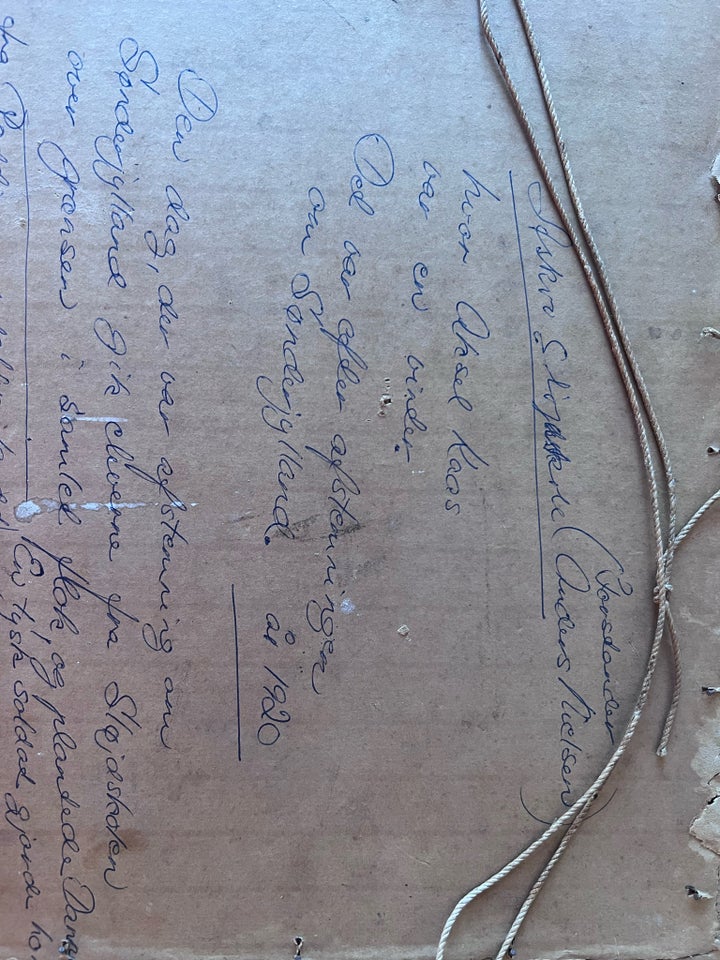 Askov Sløjdskole (Forstander
Anders Nielsen)
hvor Aksel Kaas
var en vinder.
Det var efter afstemningen
om Sønderjylland. år 1920
Den dag, der var afstemning om
Sønderjylland gik eleverne fra Sløjdskolen
over grænsen i samlet flok, og plantede Danne
En tysk soldat gjorde ho